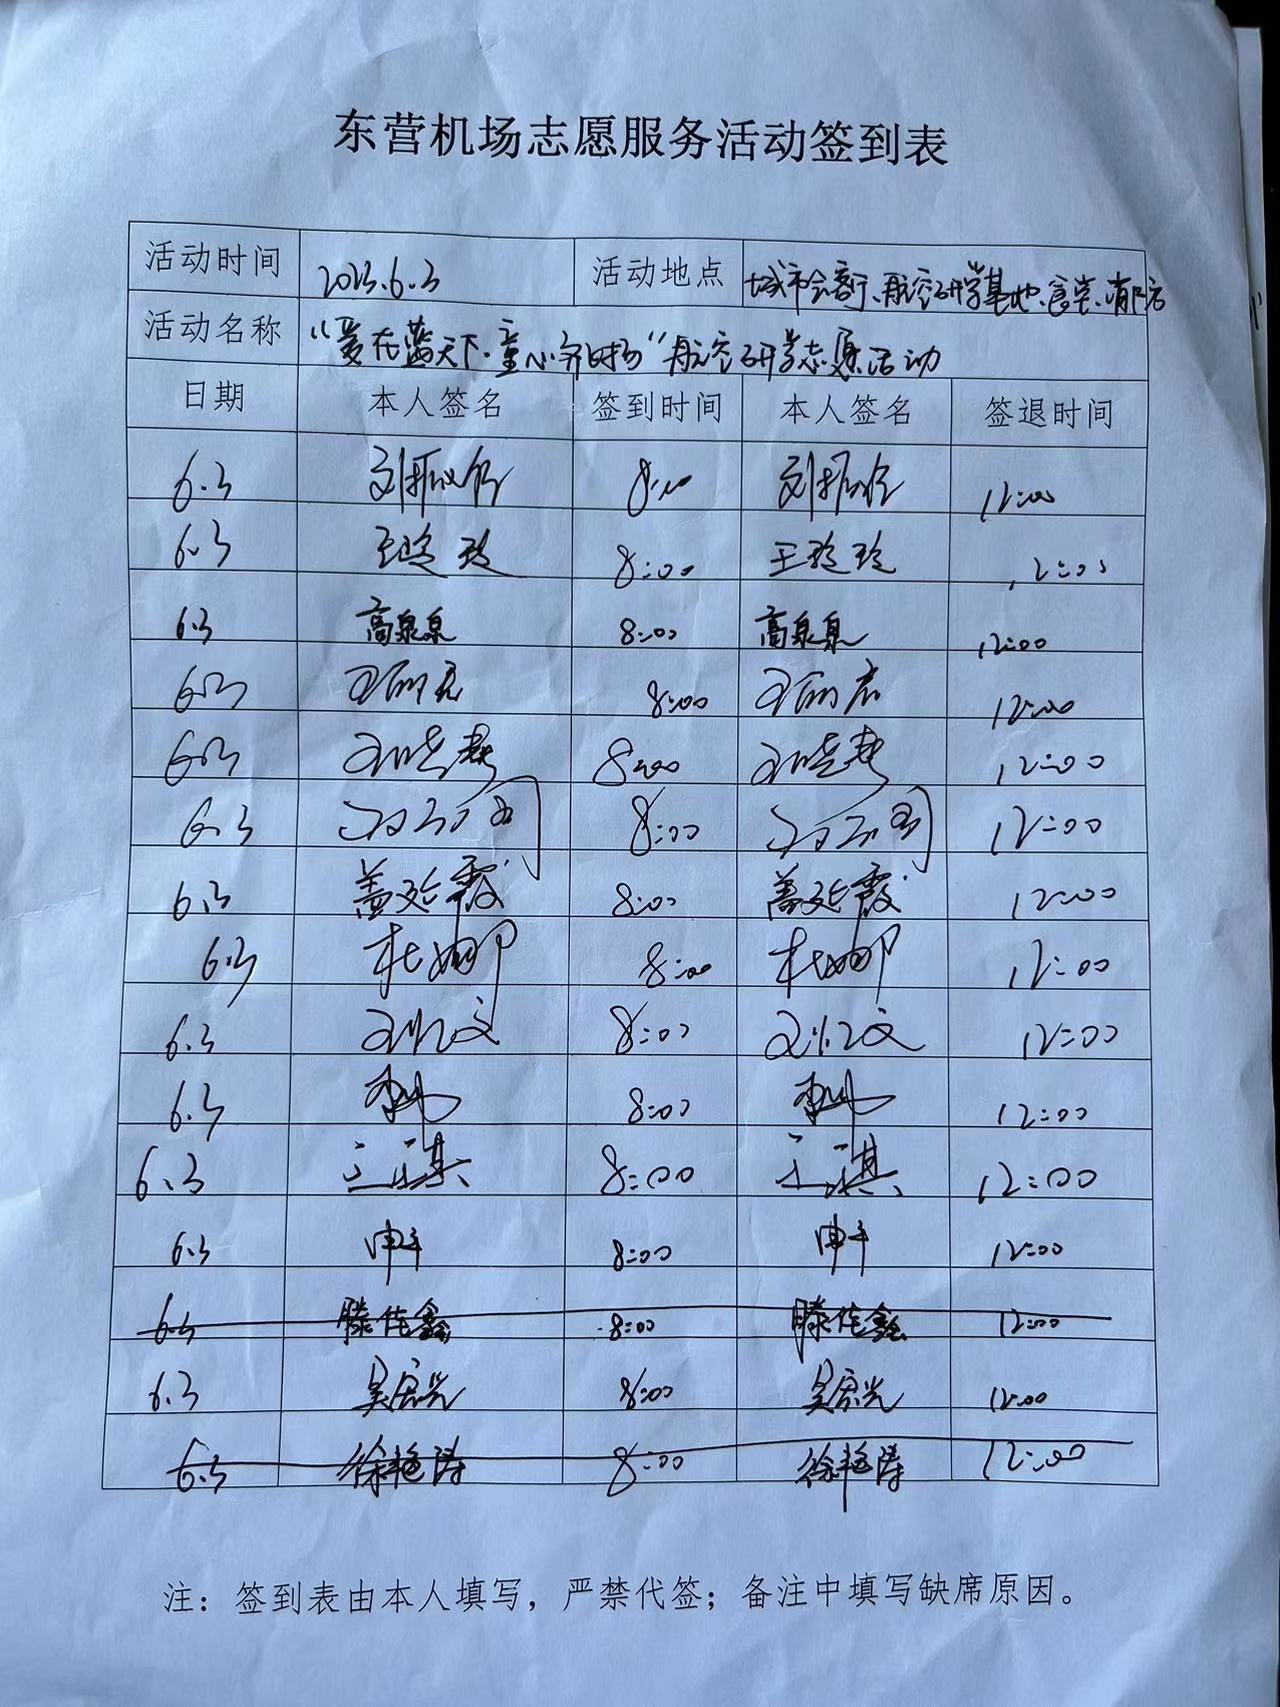 东营机场志愿服务活动签到表
活动时间 2023.6.3 活动地点 城市会客厅、航空研学基地、食堂、消防
活动名称 “爱在蓝天下·童心齐飞扬”航空研学志愿活动
日期 本人签名 签到时间 本人签名 签退时间
6.3 8:00 12:00
6.3 王玲玲 8:00 王玲玲 12:00
6.3 高泉泉 8:00 高泉泉 12:00
6.3 8:00 12:00
6.3 8:00 12:00
6.3 8:00 12:00
6.3 盖延霞 8:00 盖延霞 12:00
6.3 杜娜 8:00 杜娜 12:00
6.3 8:00 12:00
6.3 8:00 12:00
6.3 王琪 8:00 王琪 12:00
6.3 8:00 12:00
6.3 滕佳鑫 8:00 滕佳鑫 12:00
6.3 吴宏光 8:00 吴宏光 12:00
6.3 徐艳涛 8:00 徐艳涛 12:00
注：签到表由本人填写，严禁代签；备注中填写缺席原因。